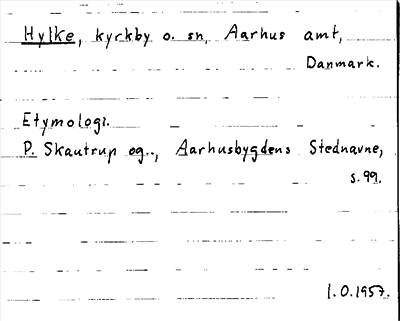 Hylke, kyrkby o. sn, Aarhus amt,
Danmark.
Etymologi.
P. Skautrup og.., Aarhusbygdens Stednavne,
s. 99.
1.0.1957.